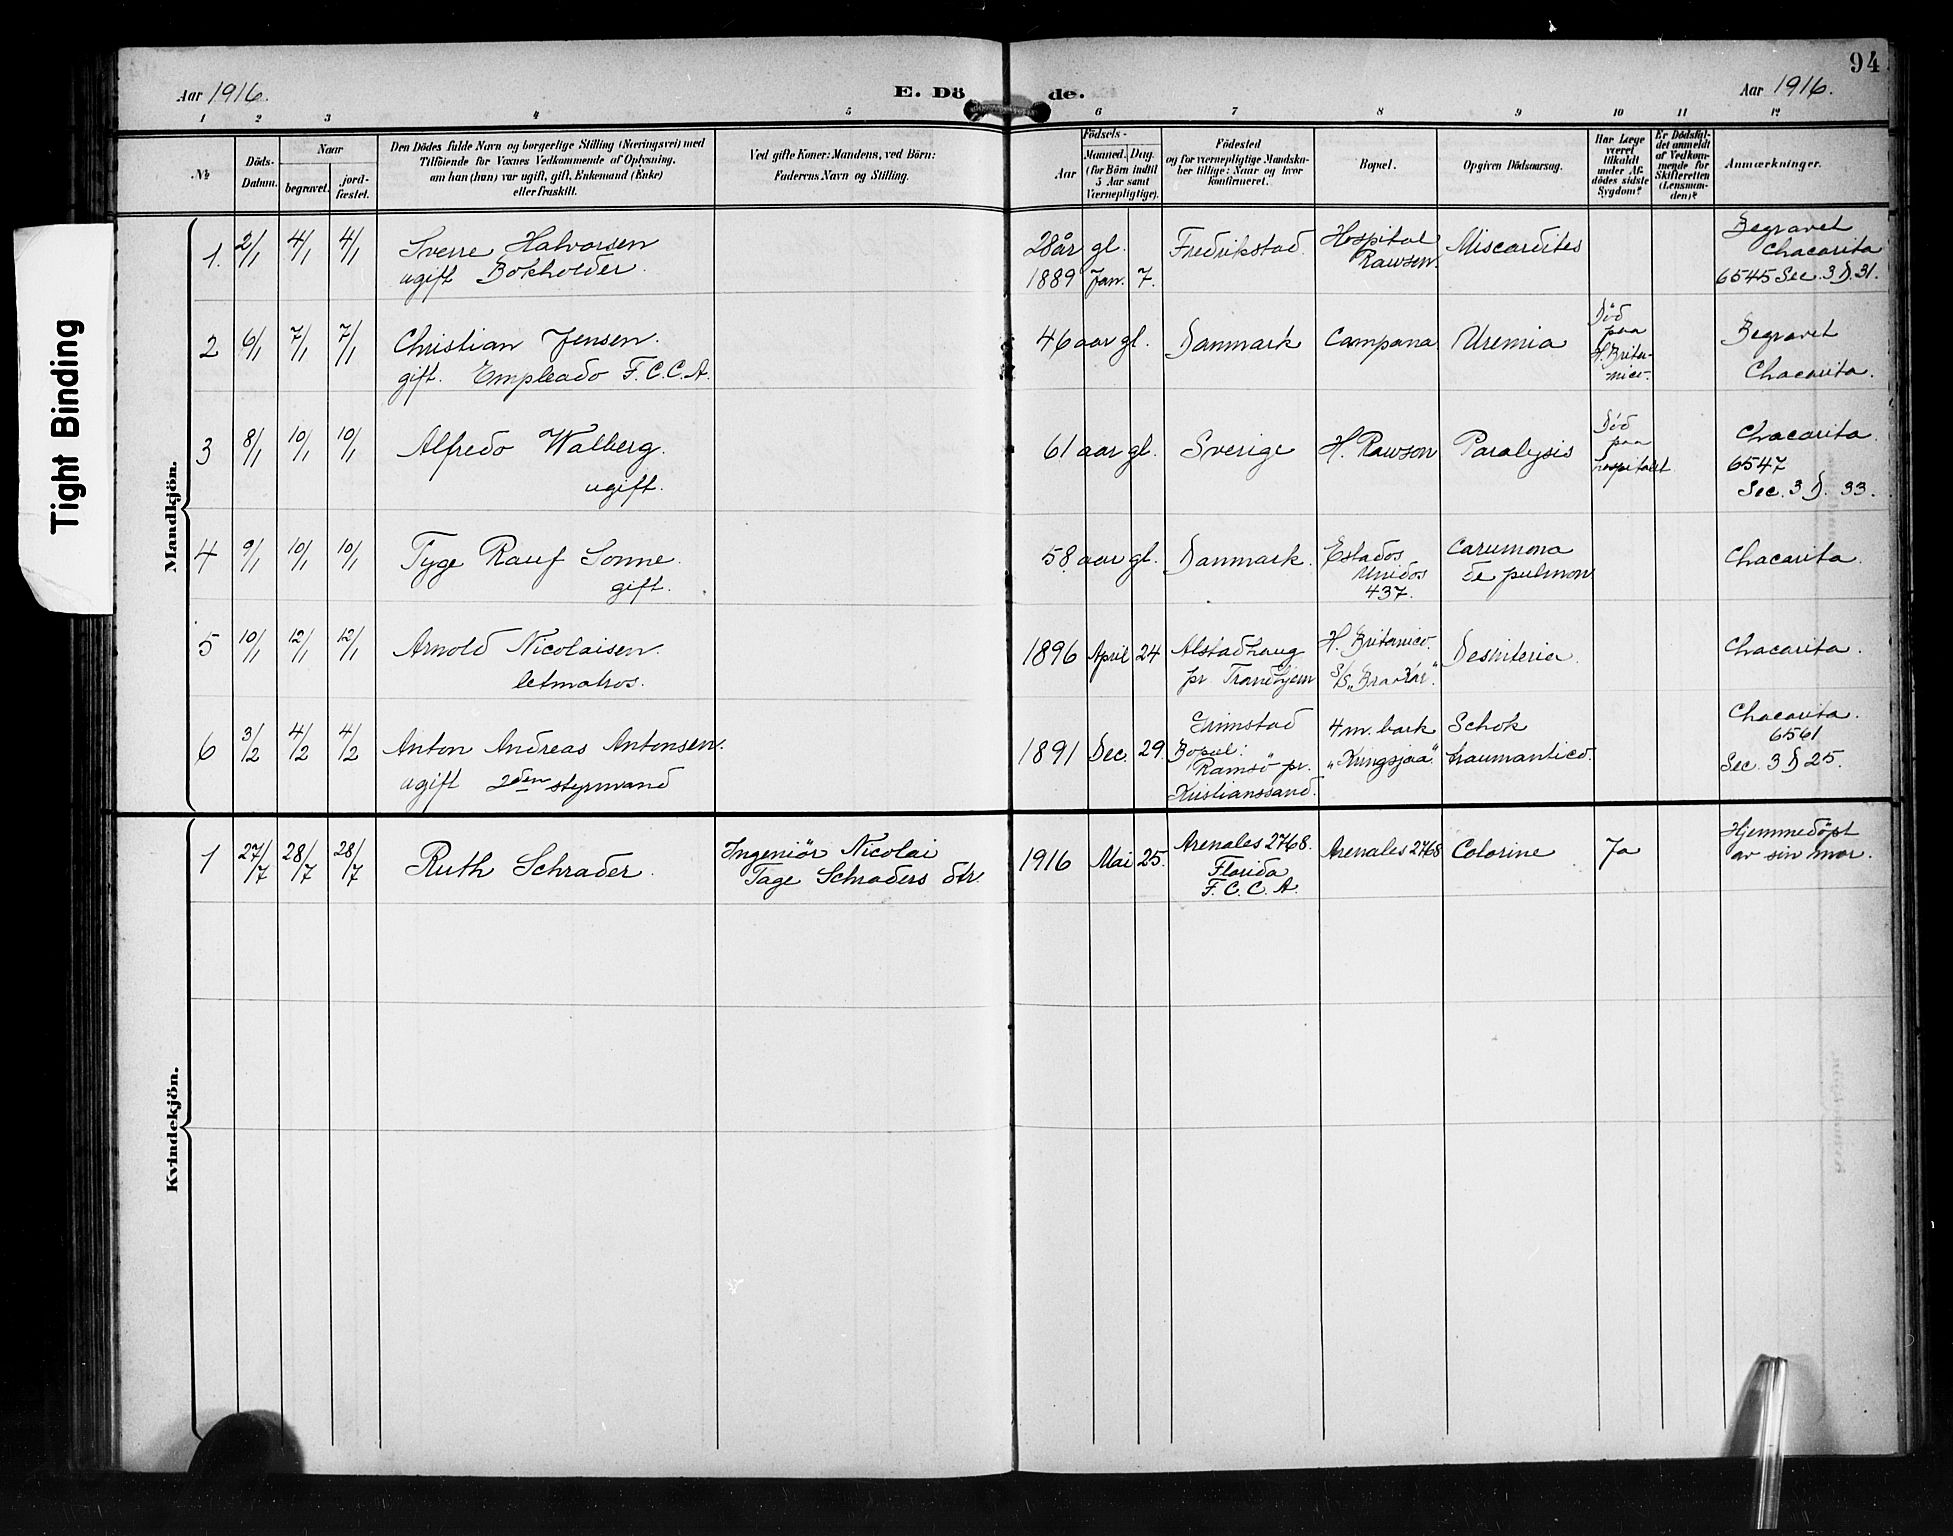 94
Aar 1916.
E. Döde.
Aar 1916.
1 2 3 4 5 6 7 8 9 10 11 12
№
Döds-
Datum.
Naar
begravet.
jord-
fæstet.
Den Dödes fulde Navn og borgerlige Stilling (Næringsvei) med
Tilföiende for Voxnes Vedkommende af Oplysning,
om han (hun) var ugift, gift, Enkemand (Enke)
eller fraskilt.
Ved gifte Koner: Mandens, ved Börn:
Faderens Navn og Stilling.
Födsels-
Aar
Maaned.
Dag.
(for Börn indtil
5 Aar samt
Værnepligtige).
Födested
og for værnepligtige Mandska-
ber tillige: Naar og hvor
konfirmeret.
Bopæl.
Opgiven Dödsaarsag.
Har Læge
været
tilkaldt
under Af-
dödes sidste
Sygdom?
Er Dödsfal-
det anmeldt
af Vedkom-
mende for
Skifteretten
(Lensman-
den)?
Anmærkninger.
Tight Binding
Mandkjön.
1. 2/1 4/1 4/1
Sverre Halvorsen
ugift Bokholder.
28 år gl.
1889 Jan. 7.
Fredrikstad.
Hospital
Rawson.
Miscardites
Begravet
Chacarita
6545 Sec. 3 D. 31.
2 6/1 7/1 7/1
Christian Jensen.
gift. Empleado F.C.C.A.
46 aar gl.
Danmark
Campana
Uremia
Död
paa
H. Brita-
nico.
Begravet
Chacarita.
3 8/1 10/1 10/1
Alfredo Walberg.
ugift.
61 aar gl.
Sverige
H. Rawson
Paralysis
Död
paa
hospitalet
Chacarita.
6547
Sec. 3 D. 33.
4 9/1 10/1 10/1
Tyge Rauf Sonne.
gift.
58 aar gl.
Danmark.
Estados
Unidos
437.
Carumona
de pulmon
Chacarita.
5 10/1 12/1 12/1
Arnold Nicolaisen.
letmatros.
1896 April 24
Alstadhaug
pr Trondhjem
H. Britanico.
S/S
Desinteria.
Chacarita.
6 3/2 4/2 4/2
Anton Andreas Antonsen.
ugift 2den styrmand
1891 Dec. 29.
Grimstad
Bopæl:
Ramsö pr.
Kristianssand.
4 m. bark
"Kungsjaa"
Schok
traumantico.
Chacarita.
6561
Sec. 3 D 25.
Kvindekjön.
1 27/7 28/7 28/7
Ruth Schrader.
Ingeniör Nicolai
Tage Schraders dtr.
1916 Mai 25.
Arenales 2768.
Florida
F.C.C.A.
Arenales 2768
Colorine
Ja
Hjemmedöpt
av sin mor.